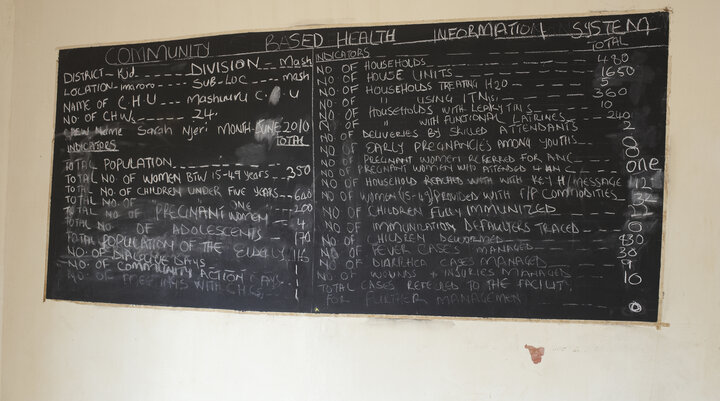 COMMUNITY BASED HEALTH INFORMATION SYSTEM
DISTRICT - Kjd DIVISION - Mash
LOCATION - imaroro SUB-LOC mash
NAME OF C H U - Mashuuru C. U
NO. OF CHWs 24.
CHEW Name Sarah Njeri MONTH - JUNE 2010
INDICATORS TOTAL
TOTAL POPULATION
TOTAL NO OF WOMEN BTW 15-49 YEARS 350
TOTAL NO. OF CHILDREN UNDER FIVE YEARS 600
TOTAL NO OF " ONE 200
TOTAL NO. OF PREGNANT WOMEN 4
TOTAL NO OF ADOLESCENTS 170
TOTAL POPULATION OF THE ELDERLY 16
NO. OF DIALOGUE DAYS
NO. OF COMMUNITY ACTION DAYS 1
NO. OF DAYS WITH CHCs 1
INDICATORS TOTAL
NO OF HOUSEHOLDS 480
NO OF HOUSE UNITS 1650
NO OF HOUSEHOLDS TREATING H2O 5
NO OF " USING ITNs 360
NO OF HOUSEHOLDS WITH LEAKY TINS 10
NO OF " WITH FUNCTIONAL LATRINES 240
NO OF DELIVERIES BY SKILLED ATTENDANTS 2
NO OF EARLY PREGNANCIES AMONG YOUTHS 8
NO OF PREGNANT WOMEN REFERRED FOR ANC 8
NO OF PREGNANT WOMEN WHO ATTENDED 4 ANC one
NO OF HOUSEHOLD REACHED WITH WITH KEY H/MESSAGE 12
NO OF WOMEN (15-49) PROVIDED WITH F/P COMMODITIES 32
NO OF CHILDREN FULLY IMMUNIZED
NO OF IMMUNIZATION DEFAULTERS TRACED 0
NO OF CHILDREN DEWORMED 930
NO OF FEVER CASES MANAGED 30
NO OF DIARRHEA CASES MANAGED
NO OF WOUNDS + INJURIES MANAGED 10
TOTAL CASES REFERRED TO THE FACILITY
FOR FURTHER MANAGEMENT 0